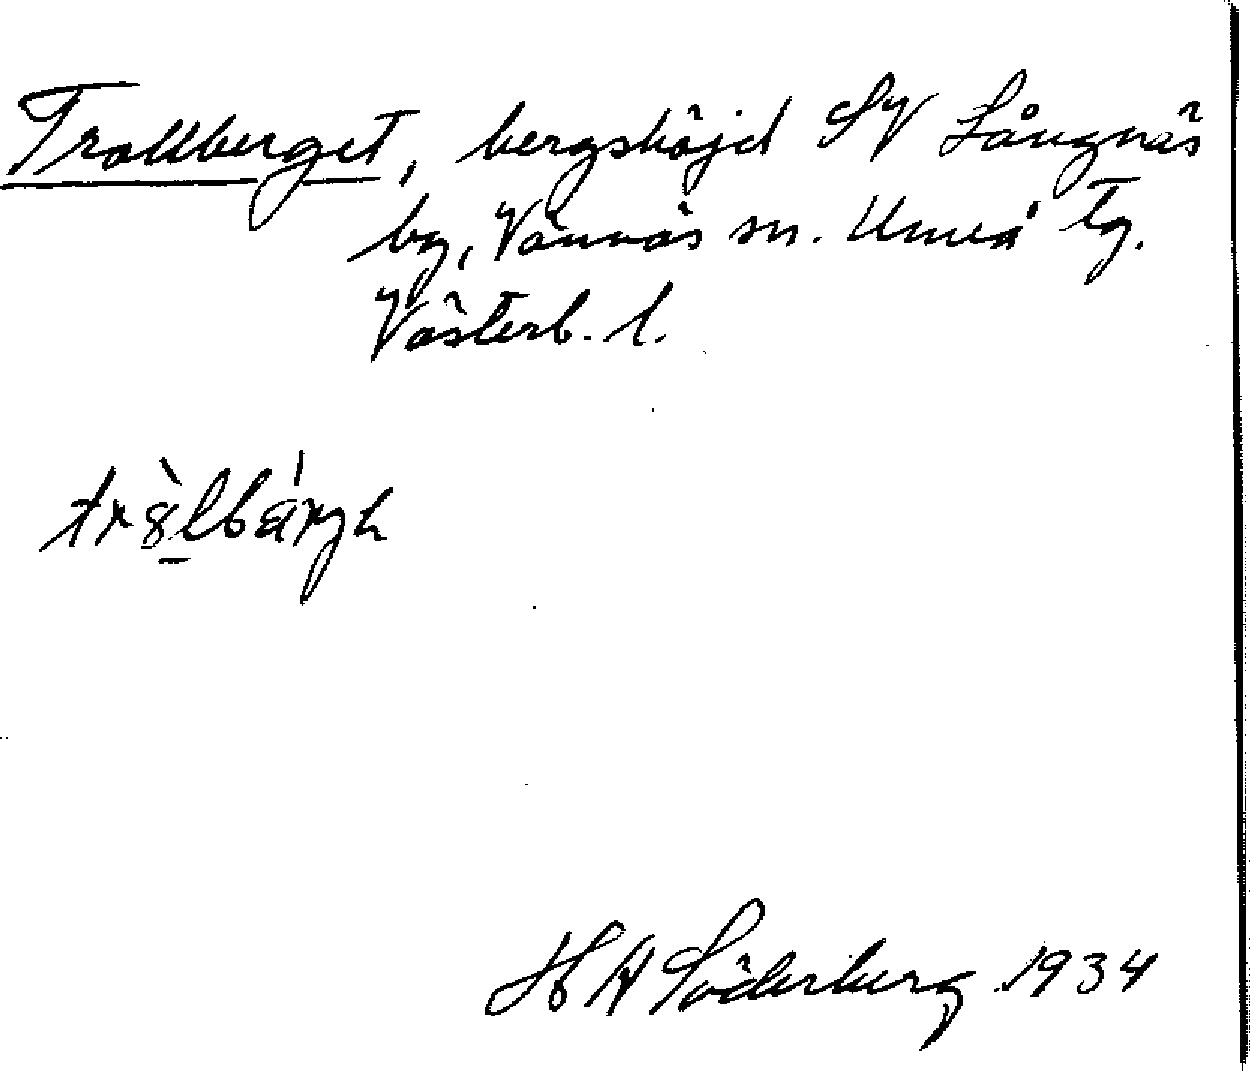 Trollberget, bergshöjd SV Långnäs
by, Vännäs sn. Umeå tg.
Västerb. l.
H A Söderberg 1934